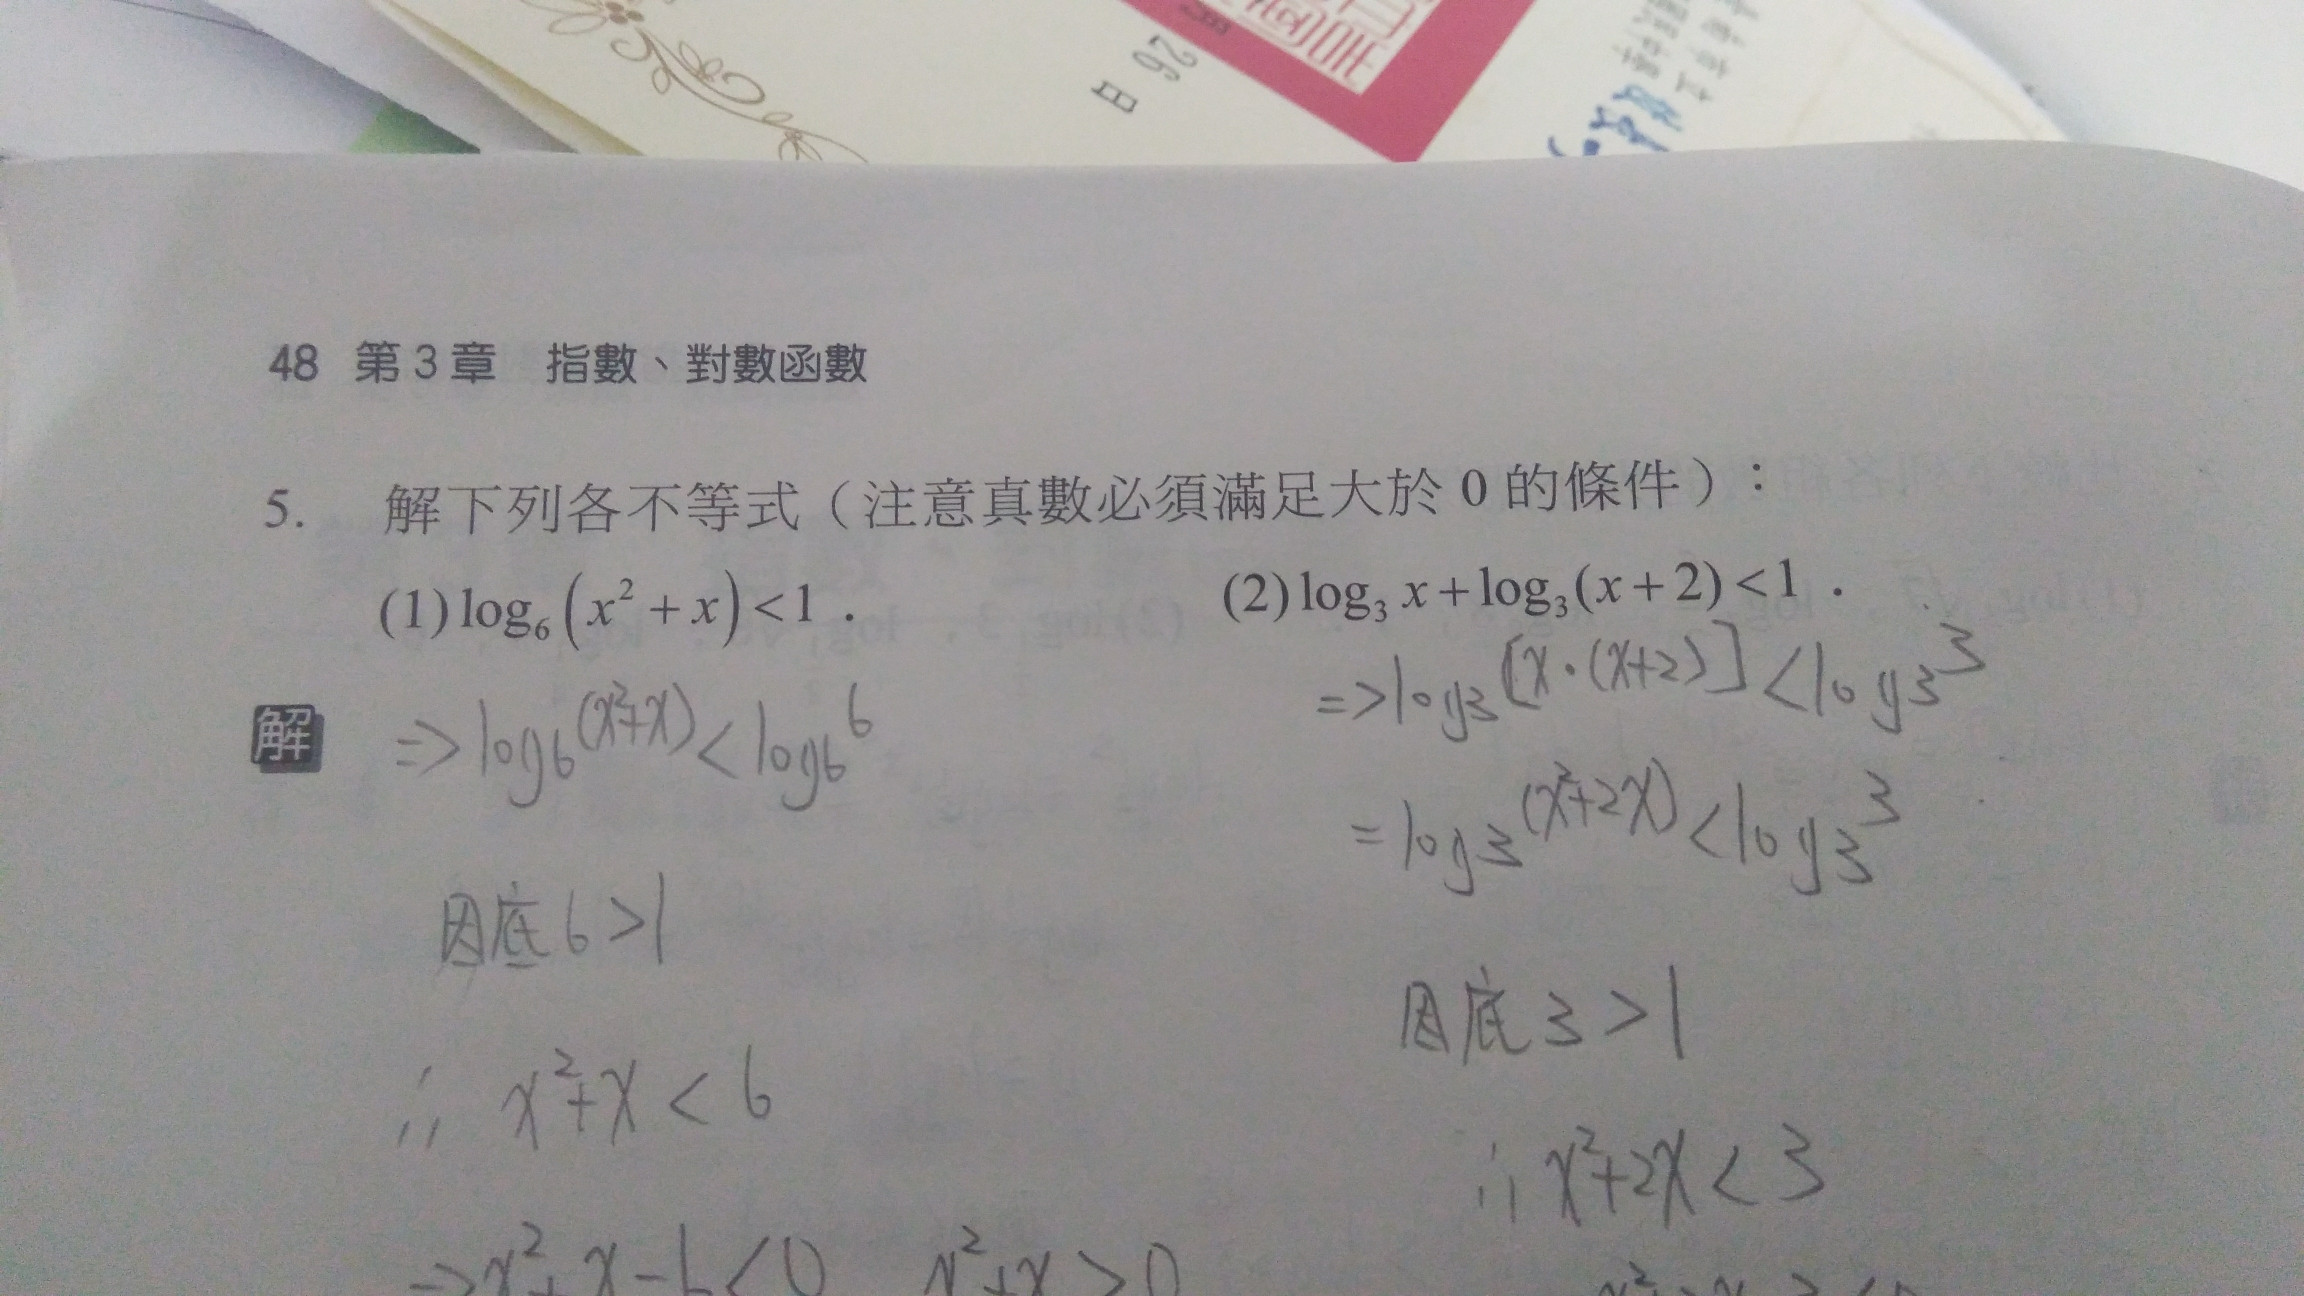 26
日
48 第3章 指數、對數函數
5. 解下列各不等式(注意真數必須滿足大於 0 的條件):
(1) log₆(x² + x) < 1 .
(2) log₃ x + log₃(x + 2) < 1 .
解
=> log₆(x²+x) < log₆6
因底 6 > 1
∴ x²+x < 6
=> x²+x-6 < 0 x²+x > 0
=> log₃[x·(x+2)] < log₃3
= log₃(x²+2x) < log₃3
因底 3 > 1
∴ x²+2x < 3